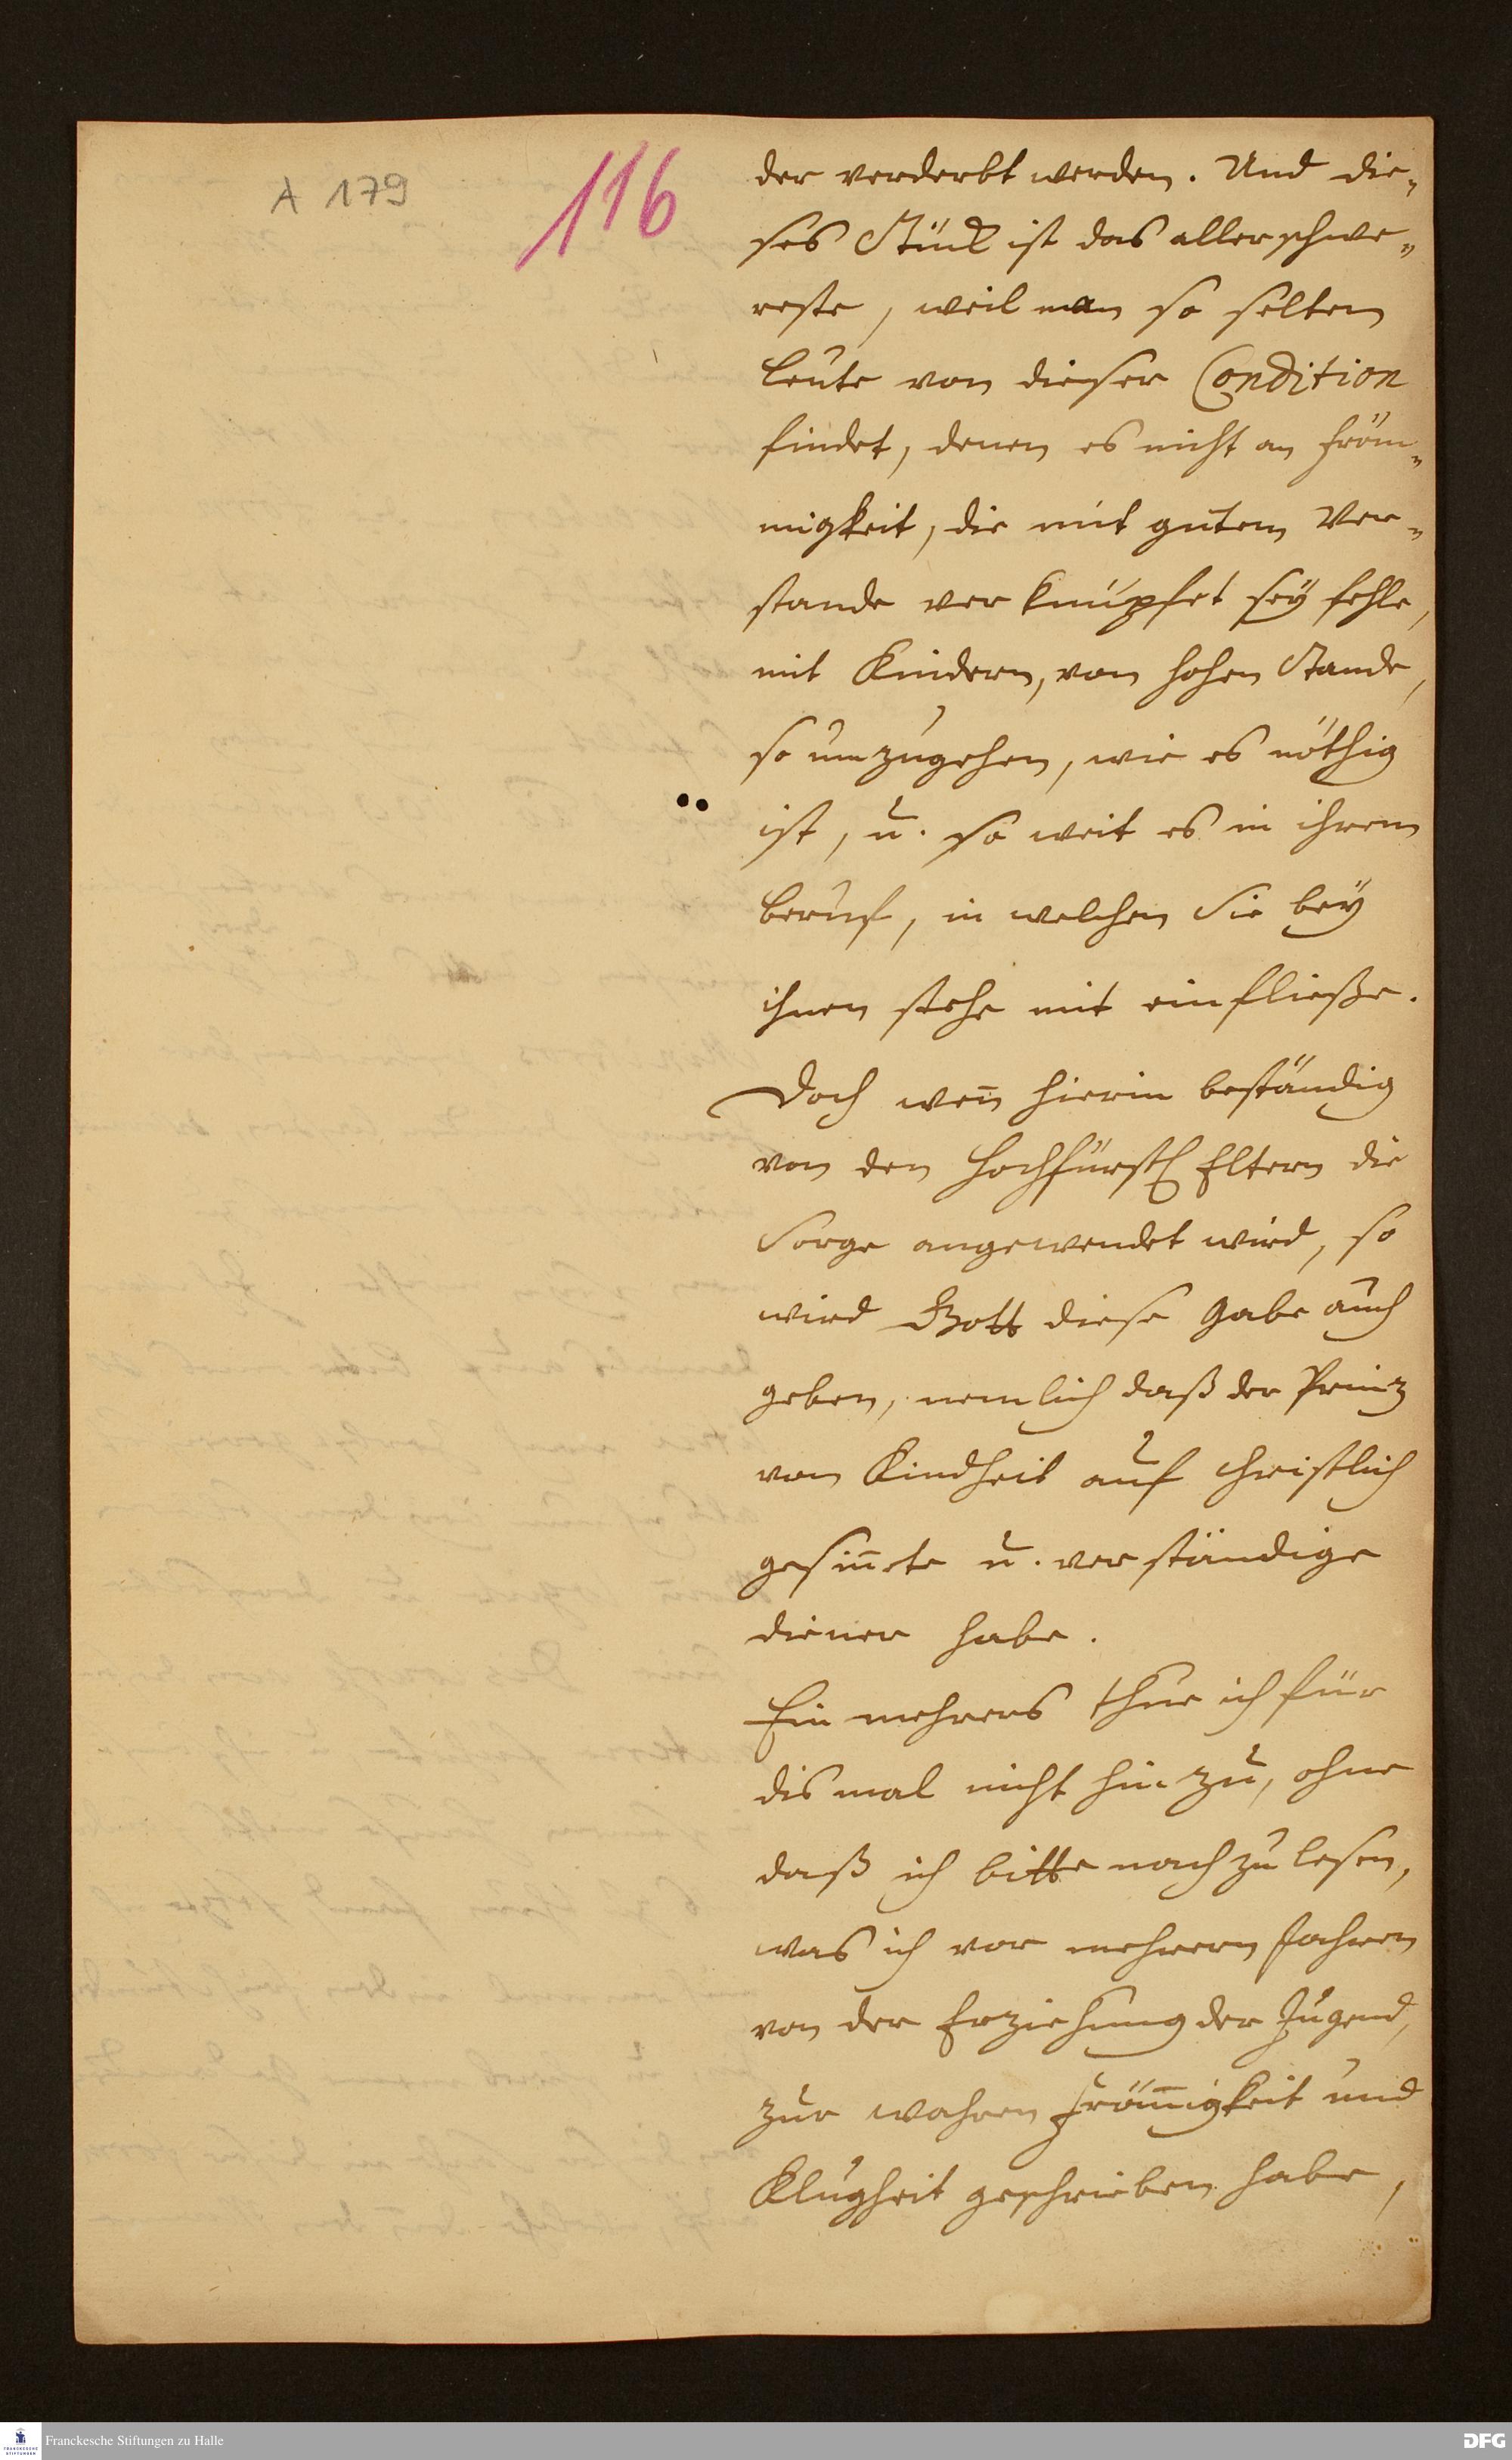 A 179
116
der verderbt werden. Und die„
ses Stück ist das allerschwe„
reste, weil man so selten
Leute von dieser Condition
findet, denen es nicht an Fröm„
migkeit, die mit gutem Ver„
stande verknüpfet sey fehle,
mit Kindern, von hohen Stande,
so umzugehen, wie es nöthig
ist, u. so weit es in ihrem
beruf, in welchen Sie bey
ihnen stehe mit einfließe.
Doch weñ hierin beständig
von den Hochfürstl Eltern die
Sorge angewendet wird, so
wird Gott diese Gabe auch
geben, nemlich daß der Prinz
von Kindheit auf christlich
gesiñete u. verständige
diener habe.
Ein mehrers thue ich für
dismal nicht hinzu, ohne
daß ich bitte nachzulesen,
was ich vor mehrern Jahren
von der Erziehung der Jugend,
zur wahren Fröm̃igkeit und
Klugheit geschrieben habe,
Franckesche Stiftungen zu Halle
DFG